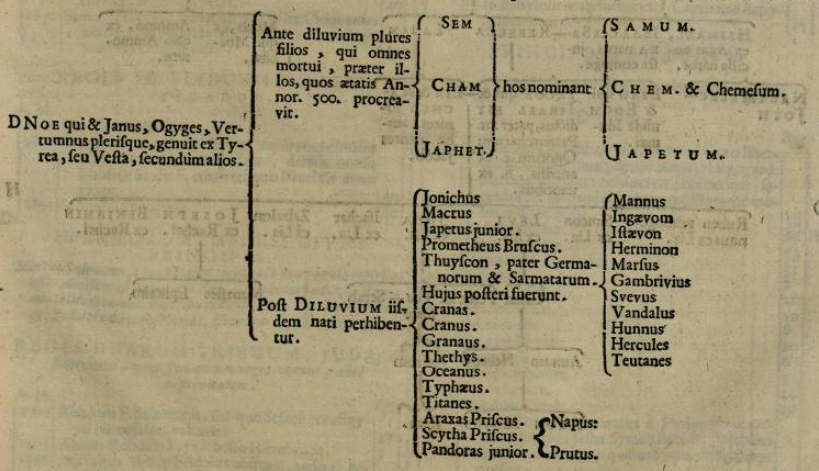 D NOE qui & Janus, Ogyges, Ver-
tumnus plerisque, genuit ex Ty-
rea, seu Vesta, secundum alios.
Ante diluvium plures
filios, qui omnes
mortui, præter il-
los, quos ætatis An-
nor. 500. procrea-
vit.
SEM
CHAM
JAPHET.
hos nominant
SAMUM.
CHEM. & Chemesum.
JAPETUM.
Post DILUVIUM iis-
dem nati perhiben-
tur.
Jonichus
Macrus
Japetus junior.
Prometheus Bruscus.
Thuyscon, pater Germa-
norum & Sarmatarum.
Hujus posteri fuerunt.
Cranas.
Cranus.
Granaus.
Thethys.
Oceanus.
Typhæus.
Titanes.
Araxas Priscus.
Scytha Priscus.
Pandoras junior.
Mannus
Ingævom
Istævon
Herminon
Marsus
Gambrivius
Svevus
Vandalus
Hunnus
Hercules
Teutanes
Napus:
Prutus.